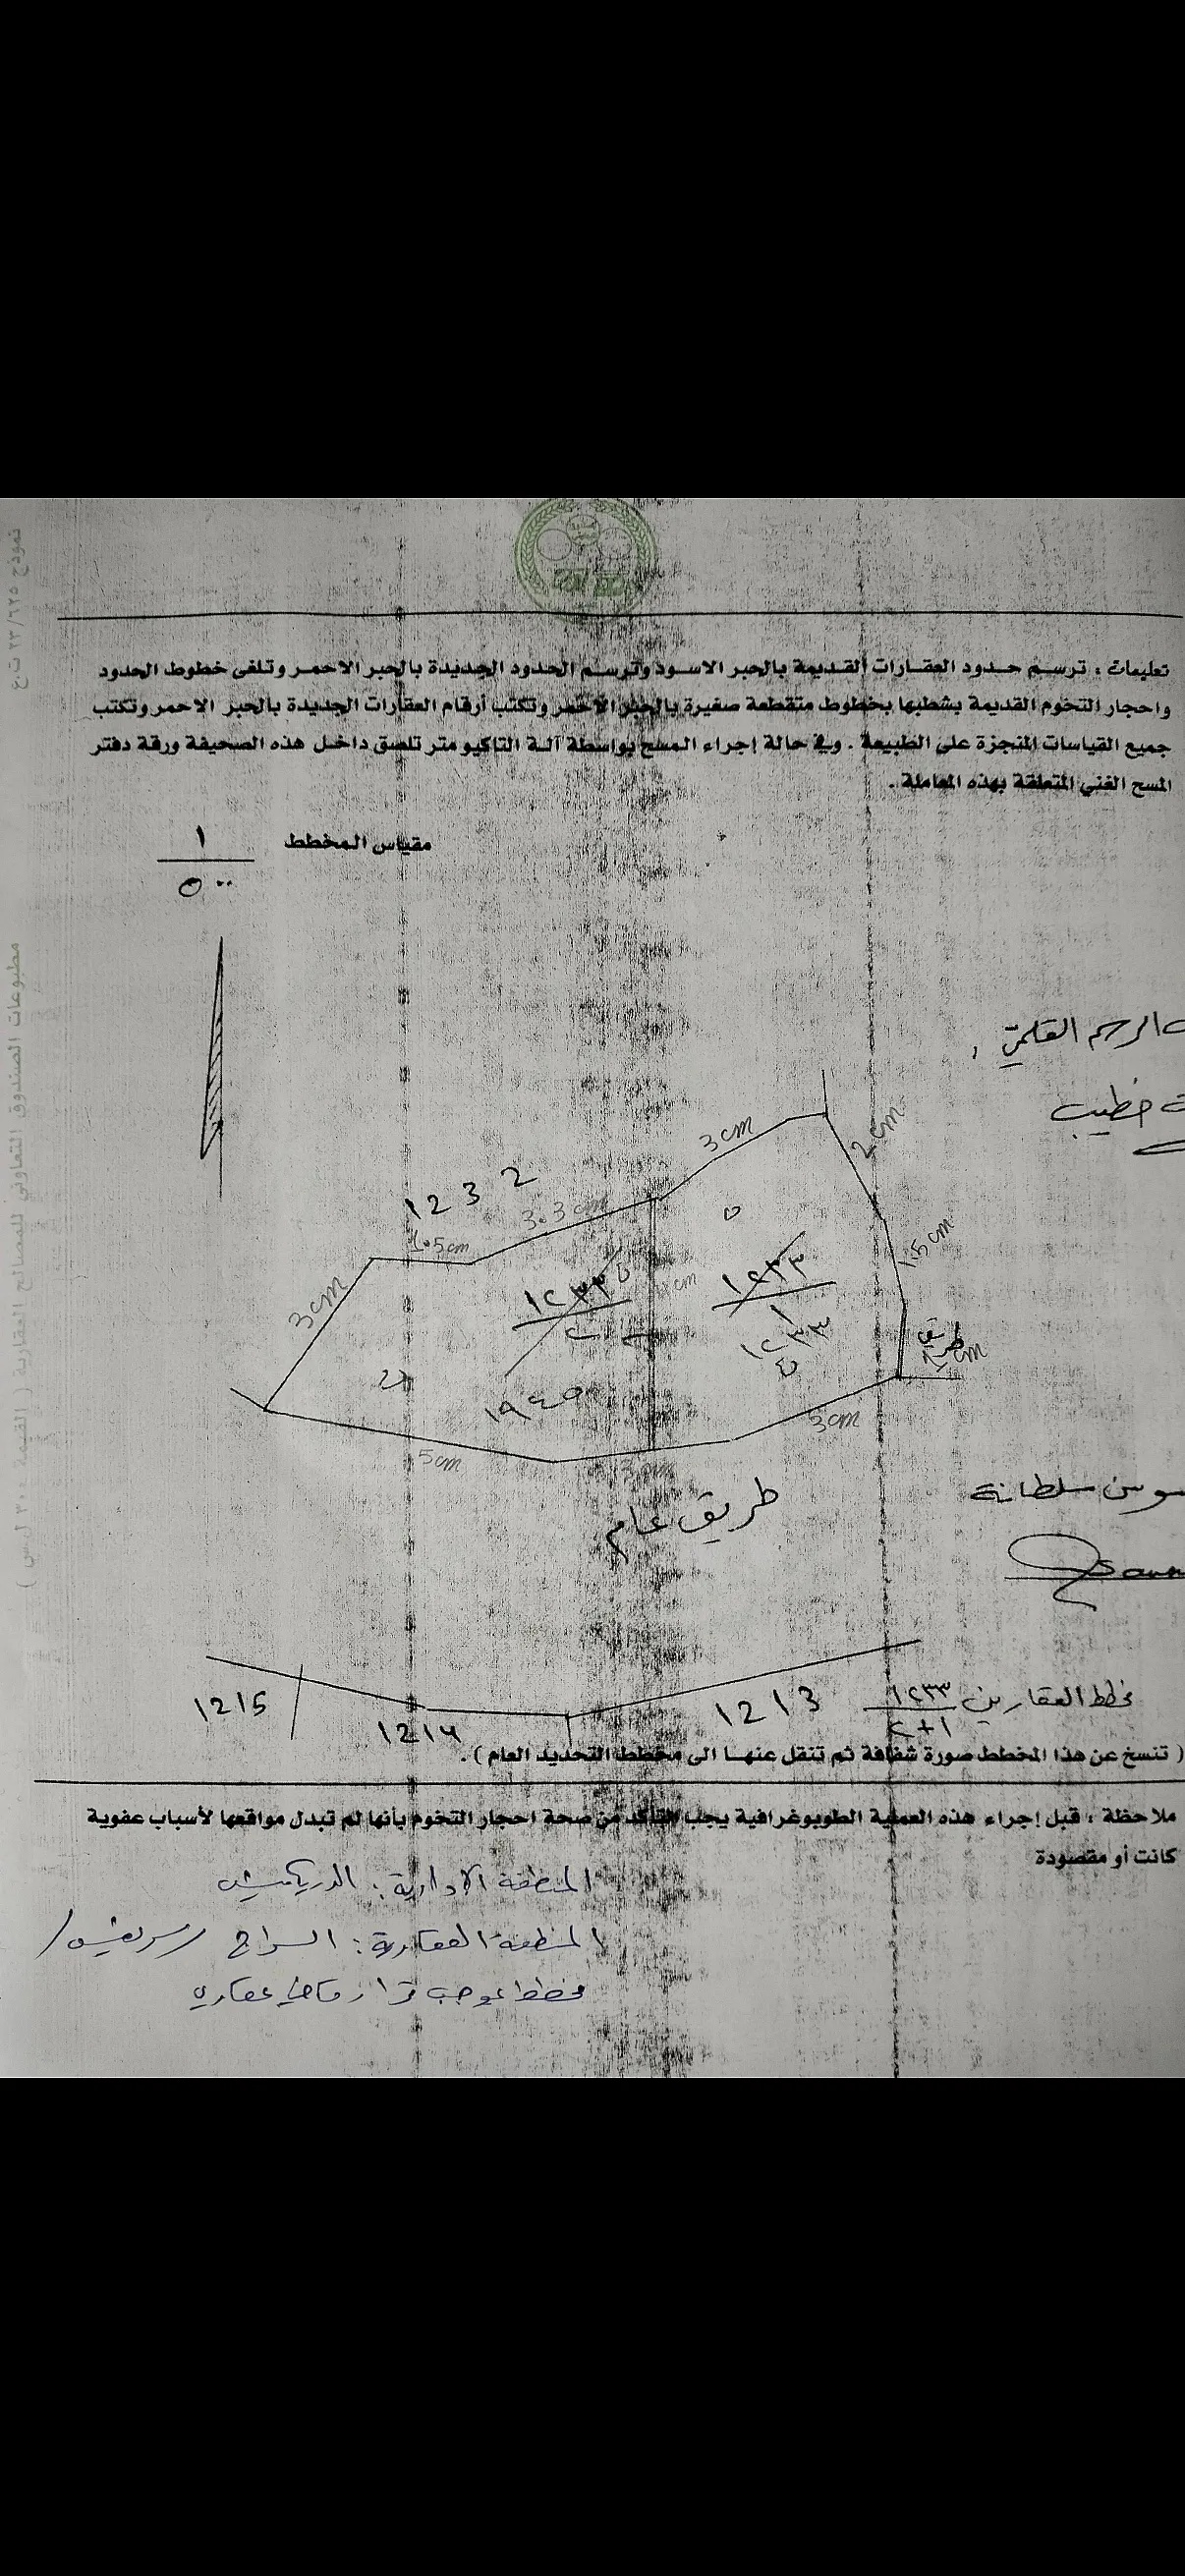 نموذج ٢٣/٦٢٥ ت.ع
تعليمات : ترسم حدود العقارات القديمة بالحبر الاسود وترسم الحدود الجديدة بالحبر الاحمر وتلغى خطوط الحدود
واحجار التخوم القديمة بشطبها بخطوط متقطعة صغيرة بالحبر الاحمر وتكتب أرقام العقارات الجديدة بالحبر الاحمر وتكتب
جميع القياسات المنجزة على الطبيعة . وفي حالة إجراء المسح بواسطة آلة التاكيو متر تلصق داخل هذه الصحيفة ورقة دفتر
المسح الفني المتعلقة بهذه المعاملة .
مقياس المخطط ١
٥٠٠
مطبوعات الصندوق التعاوني للمصالح العقارية ( القيمة ٣٠٠ ل.س )
الرحم
خطيب
3cm
2cm
1232
3.3cm
1.5cm
1.5cm
3cm
١٢٣٣
٢
١٢٣٣
١
١٢٣٣
طريق
1cm
١٩٤٥
3cm
5cm
طريق عام
سوسن سلطانة
1215
1214
1213
مخطط العقارين ١٢٣٣
٢+١
( تنسخ عن هذا المخطط صورة شفافة ثم تنقل عنها الى مخطط التحديد العام ) .
ملاحظة : قبل إجراء هذه العملية الطوبوغرافية يجب التأكد من صحة احجار التخوم بأنها لم تبدل مواقعها لأسباب عفوية
كانت أو مقصودة
المنطقة الادارية : الدريكيش
المنطقة العقارية : السراج
مخطط بموجب قرار قاضي عقاري